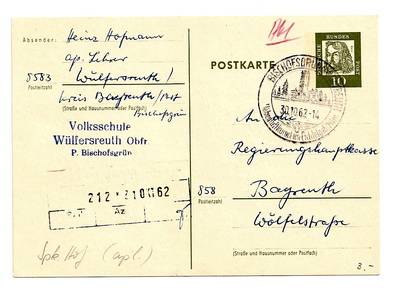 Absender: Heinz Hofmann
ap. Lehrer
8583 Wülfersreuth /
Postleitzahl
Kreis Bayreuth / Post
Bischofsgrün
(Straße und Hausnummer oder Postfach)
Volksschule
Wülfersreuth Obfr
P. Bischofsgrün
212 * 210 KI 62
Az
Spk Hof (apl.)
POSTKARTE
DEUTSCHE BUNDESPOST
10
BISCHOFSGRÜN
30.10.62-14
An die
Regierungshauptkasse
858 Bayreuth
Postleitzahl
Wölfelstraße
(Straße und Hausnummer oder Postfach)
3.-